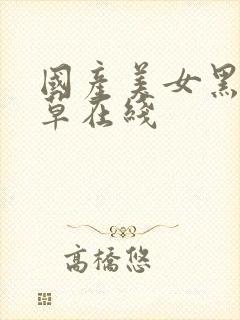 國產美女黑
草在綫
高橋悠